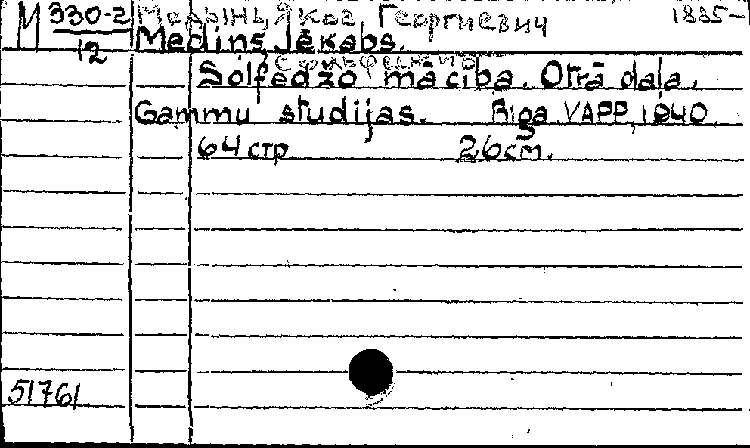 М 330-2 Медынь, Яков, Георгиевич 1885-
12 Mediņš, Jēkabs.
Сольфеджио
Solfedžo mācība. Otrā daļa.
Gammu studijas. Rīga, VAPP, 1940.
64 стр 26 см.
51761